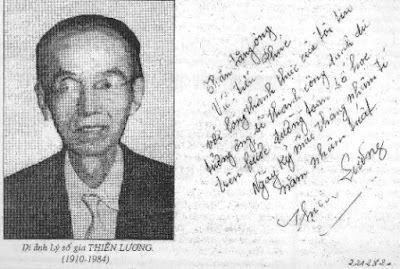 Di ảnh Lý số gia THIÊN LƯƠNG.
(1910-1984)
Thân tặng ông
Vũ tiến Phúc
với lòng thành thực của tôi tin
tưởng ông sẽ thành công trình độ
trên bước đường toán số học
Ngày Kỷ mùi tháng nhâm tí
năm nhâm tuất
Thiên Lương